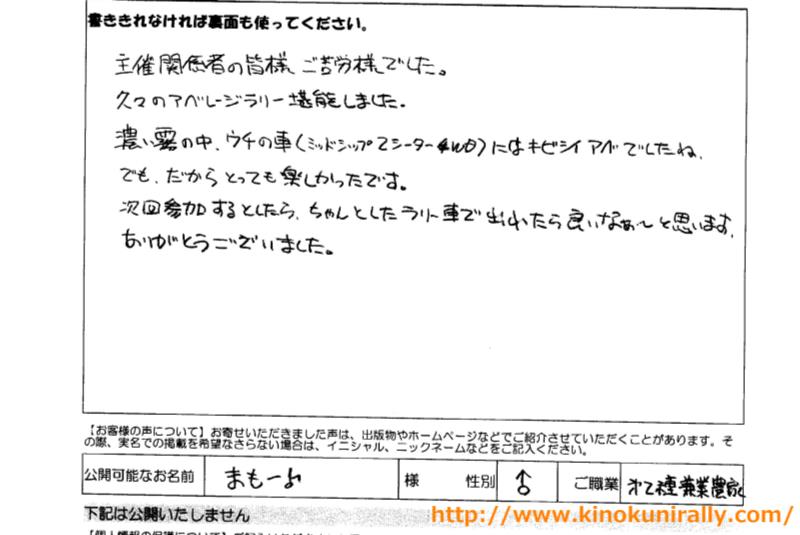 書ききれなければ裏面も使ってください。
主催関係者の皆様、ご苦労様でした。
久々のアベレージラリー堪能しました。
濃い霧の中、ウチの車(ミッドシップ2シーター4WD)にはキビシイアベでしたね、
でも、だからとっても楽しかったです。
次回参加するとしたら、ちゃんとしたラリー車で出れたら良いなぁ〜と思います、
ありがとうございました。
【お客様の声について】お寄せいただきました声は、出版物やホームページなどでご紹介させていただくことがあります。そ
の際、実名での掲載を希望なさらない場合は、イニシャル、ニックネームなどをご記入ください。
公開可能なお名前 まもーよ 様 性別 ♂ ご職業 オて種兼業農家
下記は公開いたしません
http://www.kinokunirally.com/